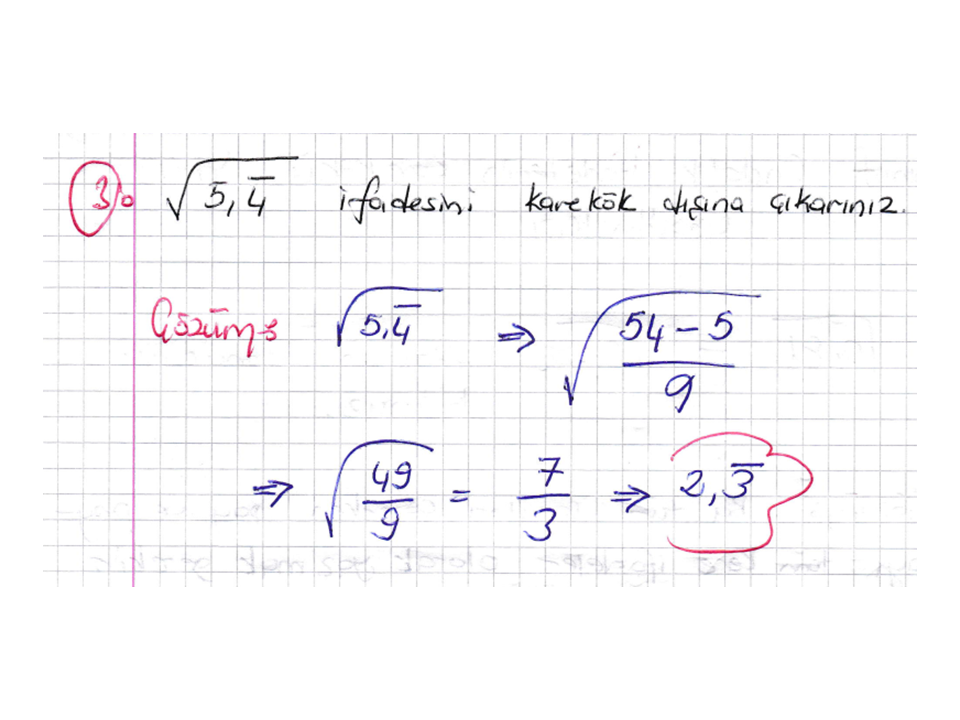 3) √5,4̅ ifadesini karekök dışına çıkarınız.
Çözüm: √5,4̅ ⇒ √((54 - 5)/9)
⇒ √(49/9) = 7/3 ⇒ 2,3̅